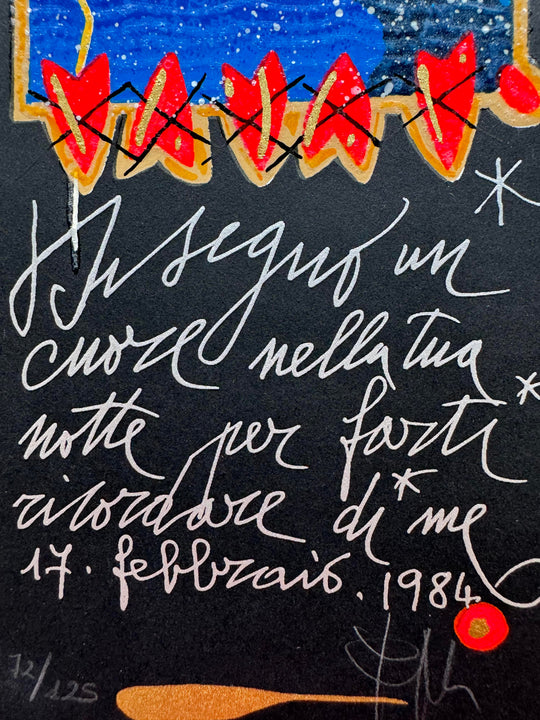 Disegno un
cuore nella tua
notte per farti
ricordare di me
17. febbraio. 1984
72/125